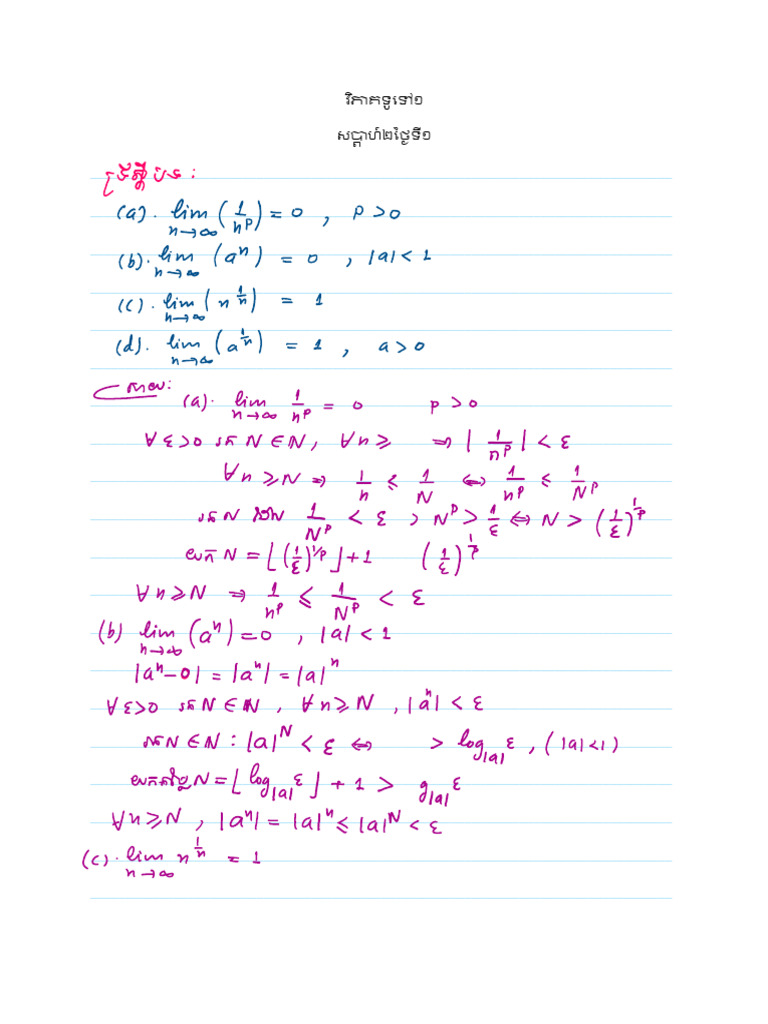 វិភាគទូទៅ១
សប្ដាហ៍២ថ្ងៃទី១
ទ្រឹស្តីបទ :
(a). lim_{n→∞} (1/n^p) = 0 , p > 0
(b). lim_{n→∞} (a^n) = 0 , |a| < 1
(c). lim_{n→∞} (n^{1/n}) = 1
(d). lim_{n→∞} (a^{1/n}) = 1 , a > 0
សម្រាយ:
(a). lim_{n→∞} 1/n^p = 0 p > 0
∀ε>0 រក N∈ℕ, ∀n≥ ⇒ |1/n^p| < ε
∀n≥N ⇒ 1/n ≤ 1/N ⇔ 1/n^p ≤ 1/N^p
រក N ដែល 1/N^p < ε , N^p > 1/ε ⇔ N > (1/ε)^{1/p}
យក N = ⌊(1/ε)^{1/p}⌋+1 (1/ε)^{1/p}
∀n≥N ⇒ 1/n^p ≤ 1/N^p < ε
(b) lim_{n→∞} (a^n) = 0 , |a| < 1
|a^n − 0| = |a^n| = |a|^n
∀ε>0 រក N∈ℕ , ∀n≥N , |a^n| < ε
រក N∈ℕ : |a|^N < ε ⇔ > log_{|a|} ε , (|a|<1)
យកតម្លៃ N = ⌊log_{|a|} ε⌋ + 1 > g_{|a|} ε
∀n≥N , |a^n| = |a|^n ≤ |a|^N < ε
(c). lim_{n→∞} n^{1/n} = 1